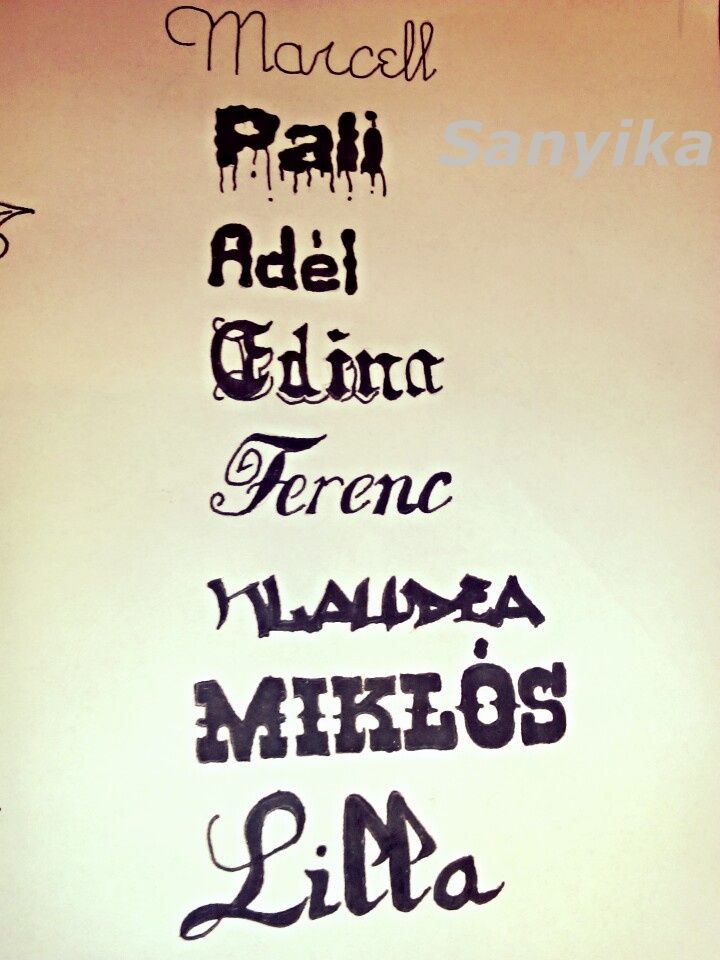 Marcell
Pali
Sanyika
Adél
Edina
Ferenc
KLAUDIA
MIKLÓS
Lilla